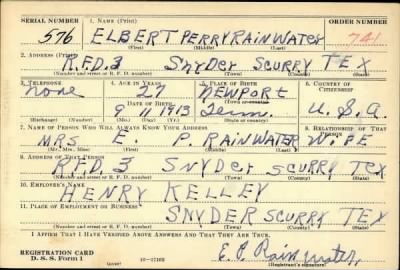 SERIAL NUMBER 1. NAME (Print) ORDER NUMBER
576 ELBERT PERRY RAINWATER 741
(First) (Middle) (Last)
2. ADDRESS (Print)
R.F.D. 3 SNYDER SCURRY TEX
(Number and street or R. F. D. number) (Town) (County) (State)
3. TELEPHONE 4. AGE IN YEARS 5. PLACE OF BIRTH 6. COUNTRY OF CITIZENSHIP
none 27 NEWPORT
DATE OF BIRTH (Town or county)
9 11 1913 Tenn. U.S.A.
(Exchange) (Number) (Mo.) (Day) (Yr.) (State or country)
7. NAME OF PERSON WHO WILL ALWAYS KNOW YOUR ADDRESS 8. RELATIONSHIP OF THAT PERSON
MRS E. P. RAINWATER WIFE
(Mr., Mrs., Miss) (First) (Middle) (Last)
9. ADDRESS OF THAT PERSON
R.F.D 3 SNYDER SCURRY TEX
(Number and street or R. F. D. number) (Town) (County) (State)
10. EMPLOYER'S NAME
HENRY KELLEY
11. PLACE OF EMPLOYMENT OR BUSINESS
SNYDER SCURRY TEX
(Number and street or R. F. D. number) (Town) (County) (State)
I AFFIRM THAT I HAVE VERIFIED ABOVE ANSWERS AND THAT THEY ARE TRUE.
REGISTRATION CARD
D. S. S. Form 1 16-17105 E. P. Rainwater